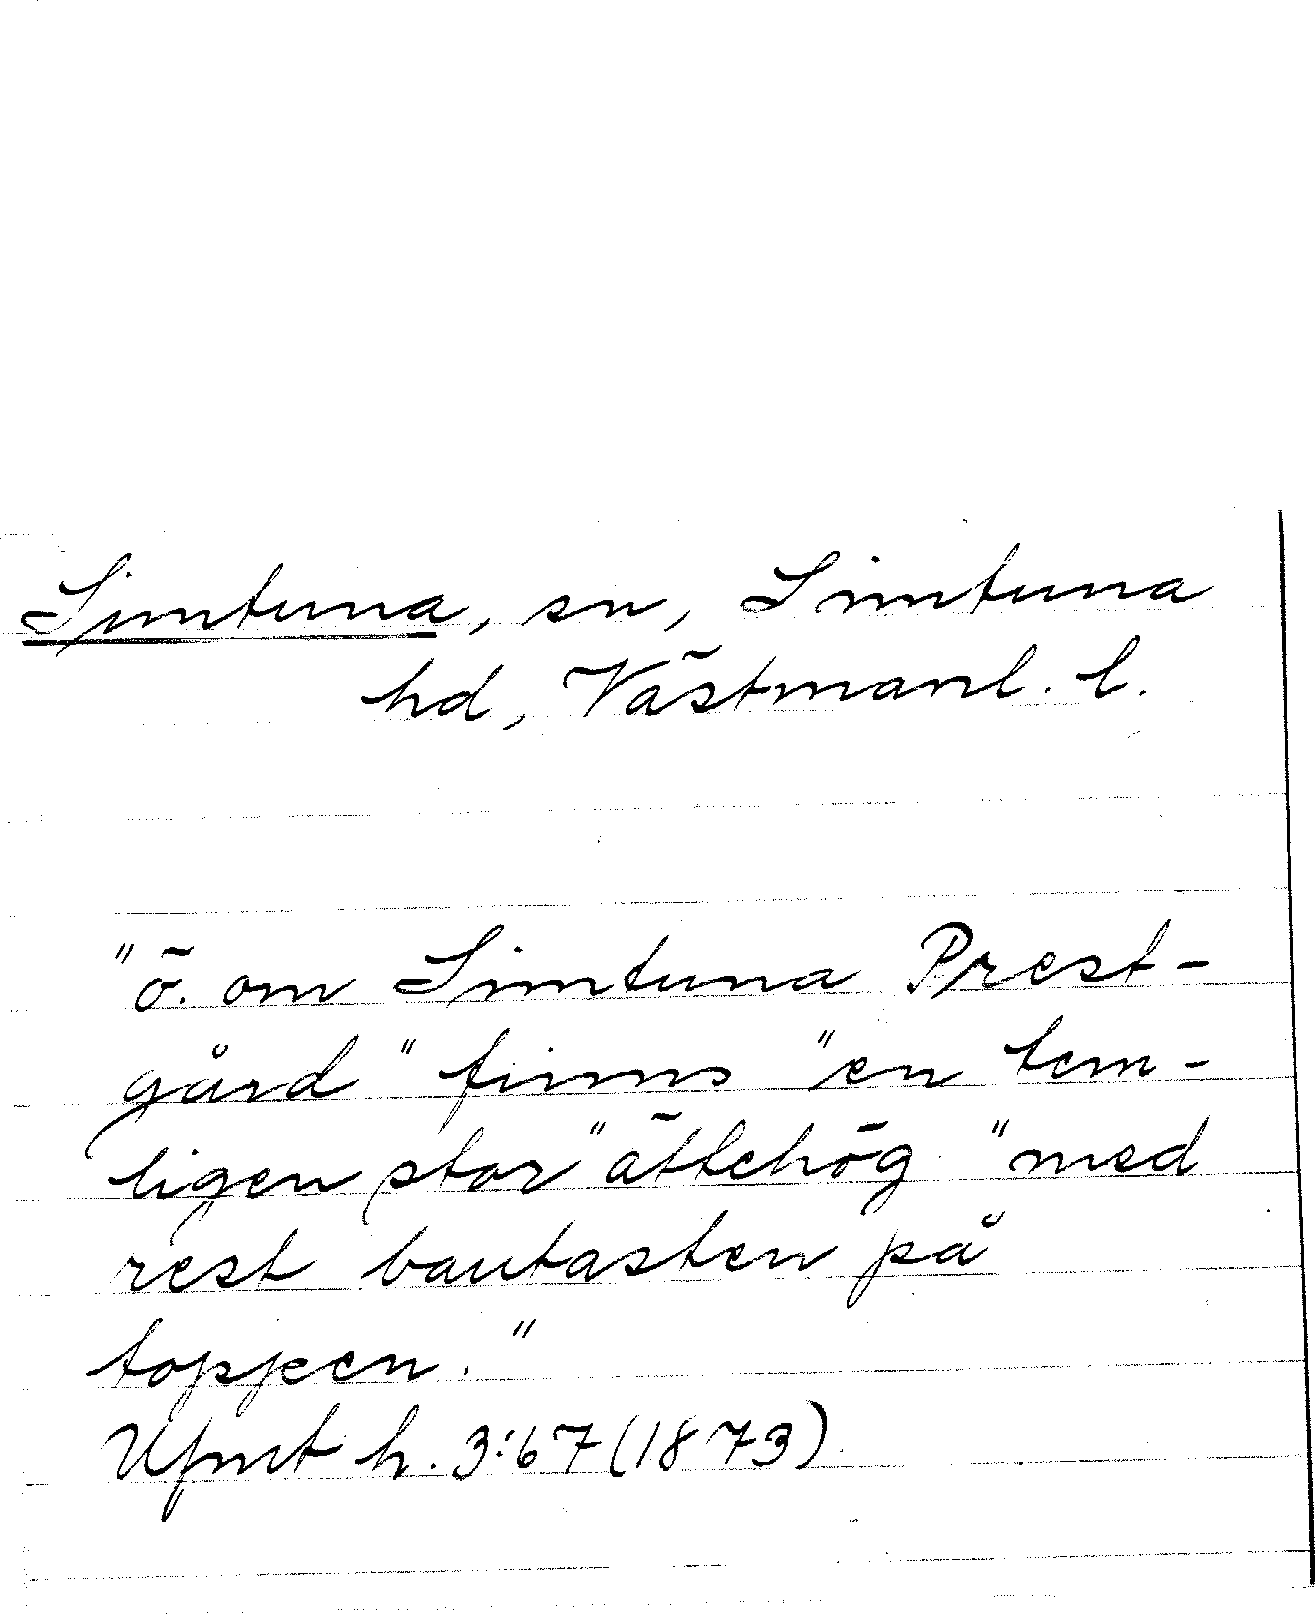 Simtuna, sn, Simtuna
hd, Västmanl. l.
"ö. om Simtuna Prest-
gård" finns "en tem-
ligen stor" ättehög "med
rest bautasten på
toppen."
Ufmt h. 3:67 (1873)